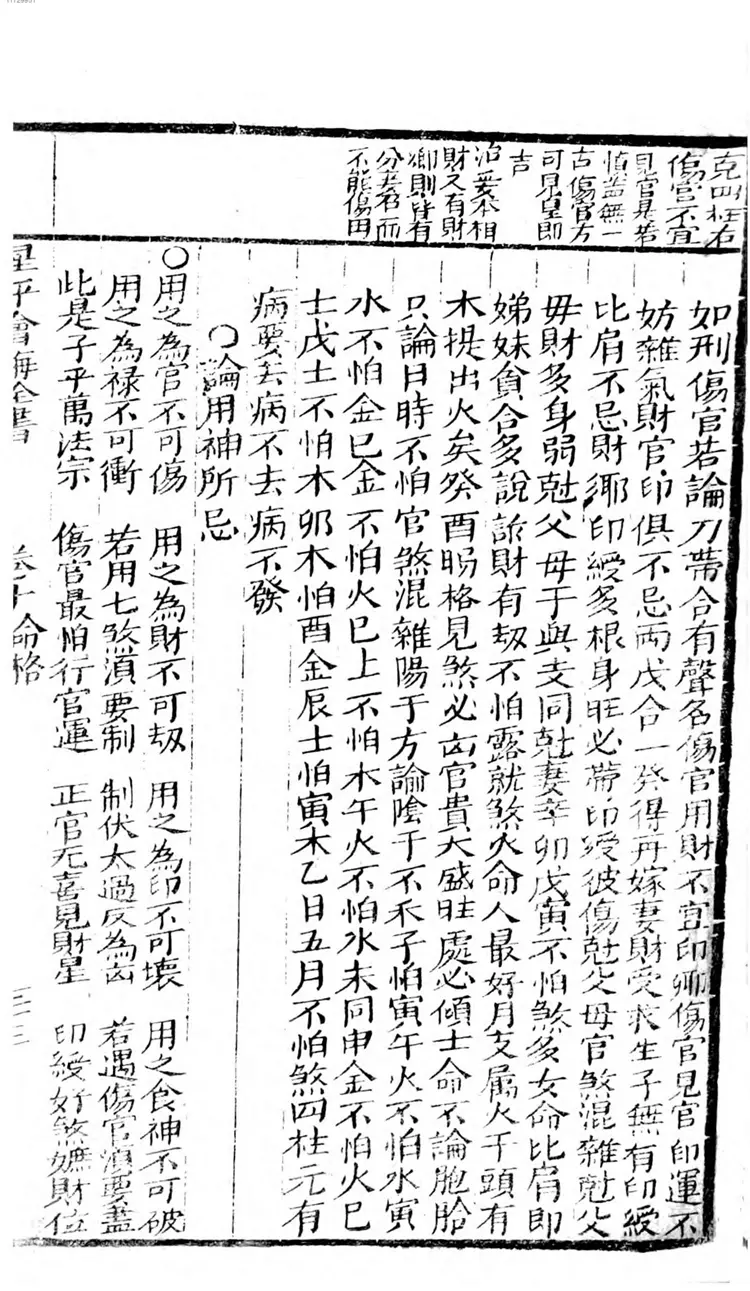 克四柱右
傷官不宜
見官是若
慎盖無一
古傷官方
可見皇即
吉
治妻本相
財又有財
卿則皆有
分妻召而
不能傷田
如刑傷官若論刀帶合有聲名傷官用財不宜印卿傷官見官印運不
妨雜氣財官印俱不忌兩戊合一癸得再嫁妻財受求生子無有印綬
比肩不忌財鄉印綬多根身旺必帶印綬彼傷尅父母官煞混雜尅父
毋財多身弱尅父母于與支同尅妻辛卯戊寅不怕煞多女命比肩即
娣妹貪合多說訴財有刼不怕露就煞火命人最好月支屬火千頭有
木提出火矣癸酉賜格見煞必凶官貴大盛旺處必傾士命不論胞胎
只論日時不怕官煞混雜陽于方論陰于不禾子怕寅午火不怕水寅
水不怕金巳金不怕火巳上不怕木午火不怕水未同申金不怕火巳
士戊土不怕木卯木怕酉金辰士怕寅木乙日五月不怕煞四柱元有
病要去病不去病不發
○論用神所忌
○用之為官不可傷 用之為財不可刼 用之為印不可壞 用之食神不可破
用之為祿不可衝 若用七煞湏要制 制伏太過反為凶 若遇傷官湏要盡
此是子平萬法宗 傷官最怕行官運 正官元喜見財星 印綬好煞嫌財位
星平會海全書 卷十命格 三三